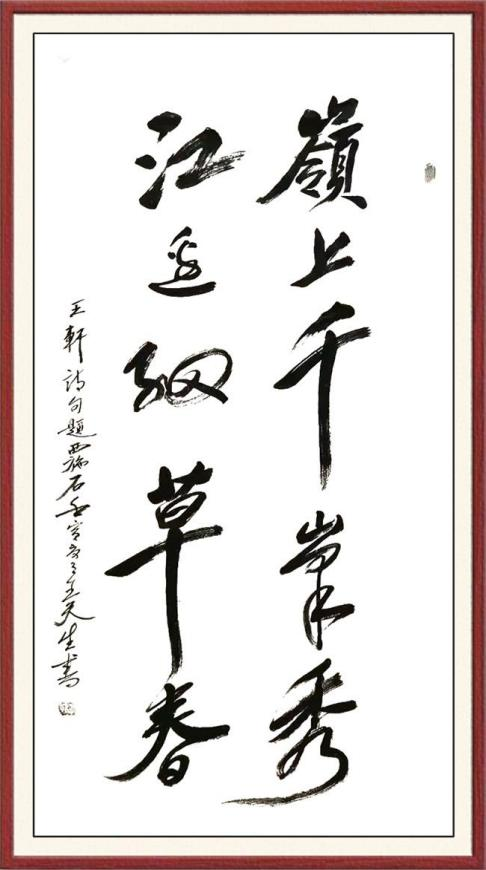 嶺上千峯秀
江邊細草春
王軒詩句題西施石壬寅年王天生書